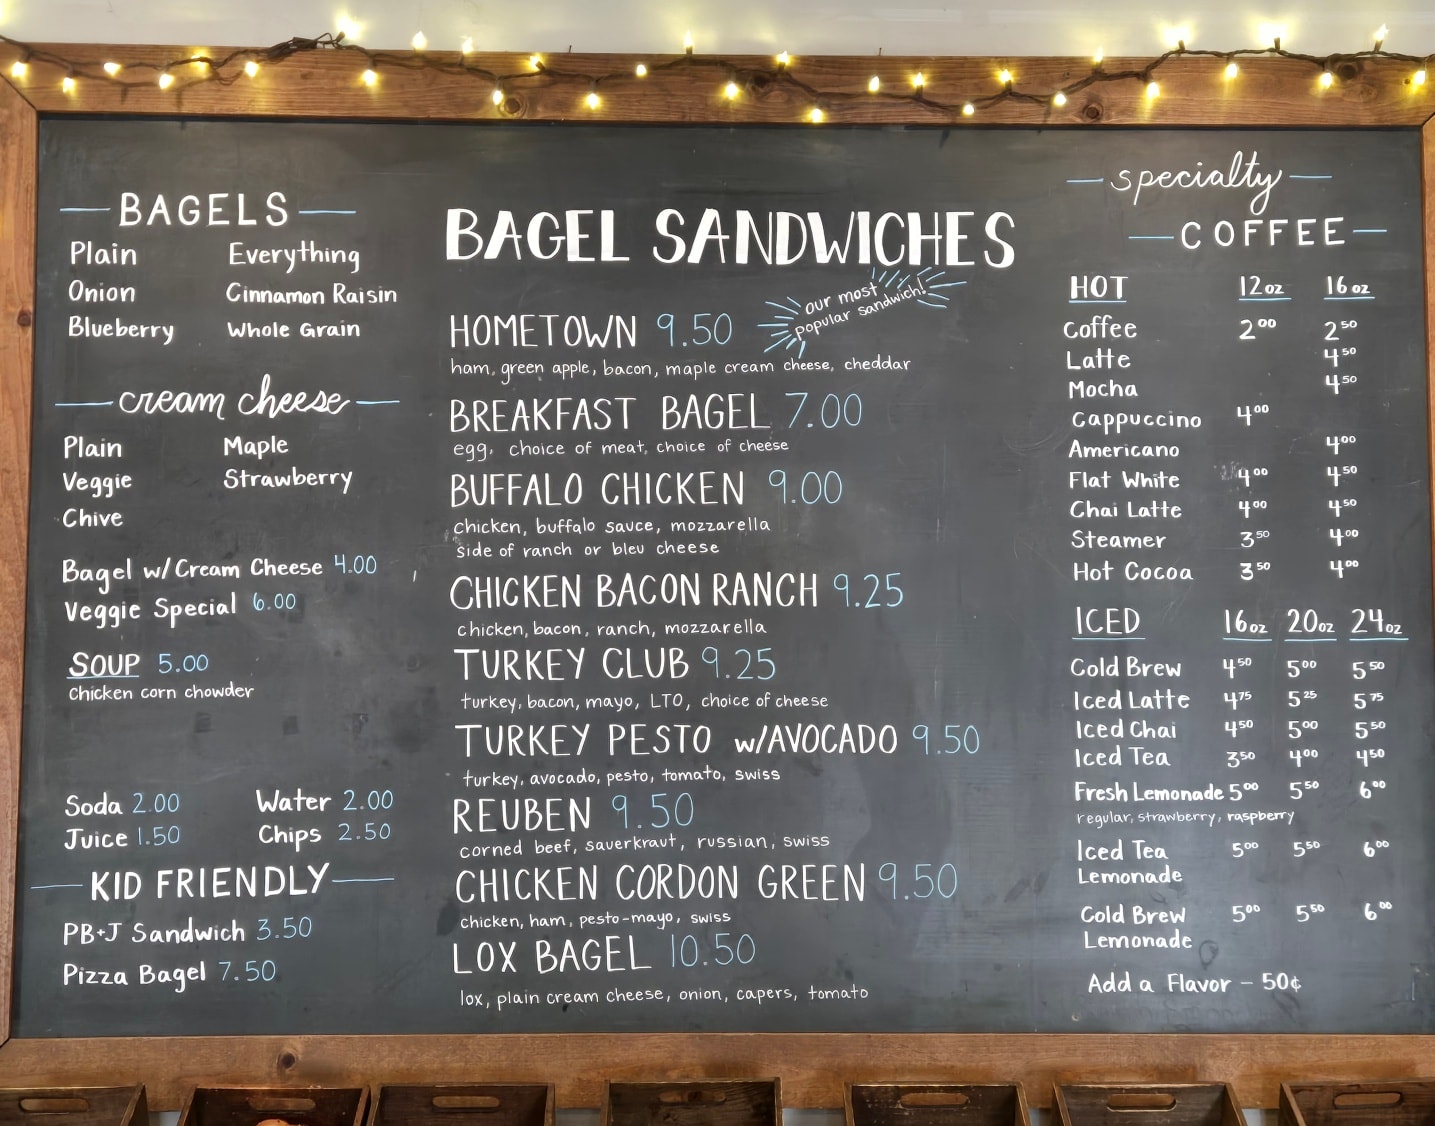 BAGELS
Plain Everything
Onion Cinnamon Raisin
Blueberry Whole Grain
cream cheese
Plain Maple
Veggie Strawberry
Chive
Bagel w/Cream Cheese 4.00
Veggie Special 6.00
SOUP 5.00
Chicken corn chowder
Soda 2.00 Water 2.00
Juice 1.50 Chips 2.50
KID FRIENDLY
PB+J Sandwich 3.50
Pizza Bagel 7.50
BAGEL SANDWICHES
our most
popular sandwich!
HOMETOWN 9.50
ham, green apple, bacon, maple cream cheese, cheddar
BREAKFAST BAGEL 7.00
egg, choice of meat, choice of cheese
BUFFALO CHICKEN 9.00
chicken, buffalo sauce, mozzarella
side of ranch or bleu cheese
CHICKEN BACON RANCH 9.25
chicken, bacon, ranch, mozzarella
TURKEY CLUB 9.25
turkey, bacon, mayo, LTO, choice of cheese
TURKEY PESTO w/AVOCADO 9.50
turkey, avocado, pesto, tomato, swiss
REUBEN 9.50
corned beef, sauerkraut, russian, swiss
CHICKEN CORDON GREEN 9.50
chicken, ham, pesto-mayo, swiss
LOX BAGEL 10.50
lox, plain cream cheese, onion, capers, tomato
specialty
COFFEE
HOT 12oz 16oz
Coffee 2.00 2.50
Latte 4.50
Mocha 4.50
Cappuccino 4.00
Americano 4.00
Flat White 4.00 4.50
Chai Latte 4.00 4.50
Steamer 3.50 4.00
Hot Cocoa 3.50 4.00
ICED 16oz 20oz 24oz
Cold Brew 4.50 5.00 5.50
Iced Latte 4.75 5.25 5.75
Iced Chai 4.50 5.00 5.50
Iced Tea 3.50 4.00 4.50
Fresh Lemonade 5.00 5.50 6.00
regular, strawberry, raspberry
Iced Tea 5.00 5.50 6.00
Lemonade
Cold Brew 5.00 5.50 6.00
Lemonade
Add a Flavor - 50¢